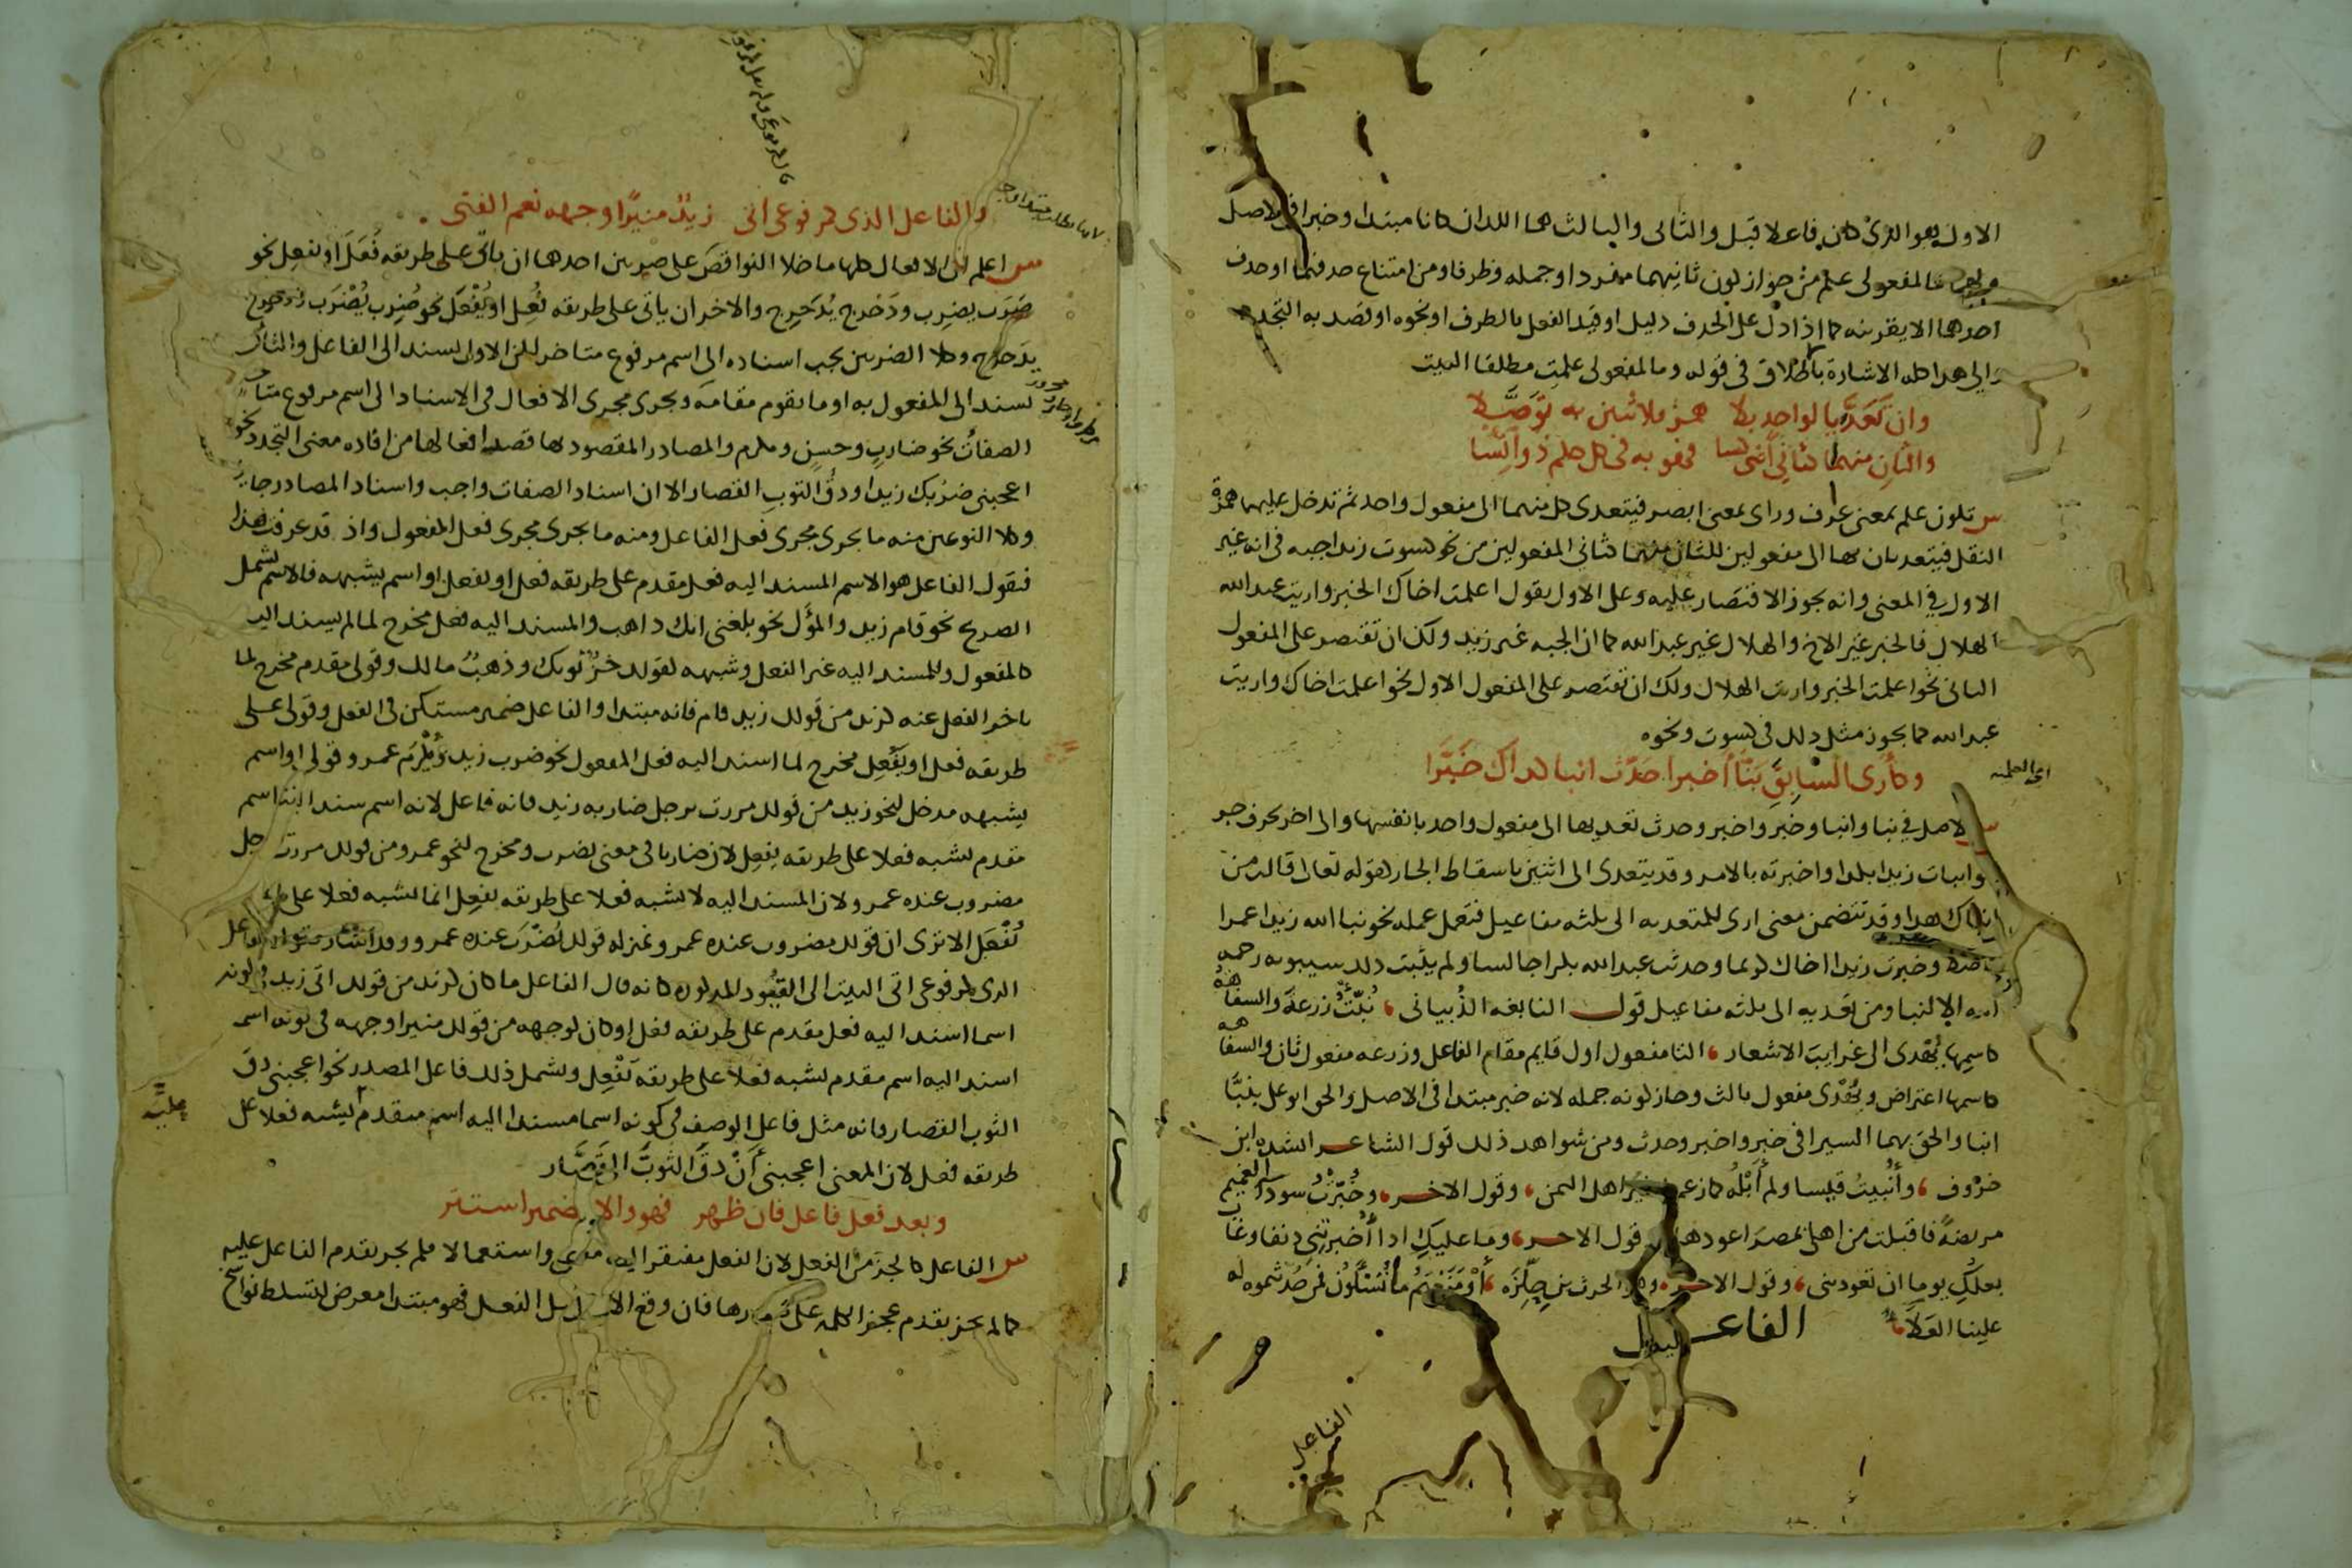 الاول هو الذى كان فاعلا قبل والثانى والثالث هما اللذان كانا مبتدا وخبرا فى الاصل
فالمفعولى علم من جواز كون ثانيهما مفردا وجمله وظرفا ومن امتناع حذفهما او حذف
احدهما الا بقرينه كما اذا دل على الحذف دليل او قيد الفعل بالظرف او نحوه او قصد به التجدد
والى هذا كله الاشارة بالاطلاق فى قوله وما لمفعولى علمت مطلقا البيت
وان تعديا لواحد بلا همز فلاثنين به توصلا
والثان منهما كثانى اثنى كسا فهو به فى كل حكم ذو ائتسا
س تكون علم بمعنى عرف وراى بمعنى ابصر فيتعدى كل منهما الى مفعول واحد ثم تدخل عليهما همزة
النقل فيتعديان بها الى مفعولين للثانى منهما كثانى المفعولين من نحو كسوت زيدا جبه فى انه غير
الاول فى المعنى وانه يجوز الاقتصار عليه وعلى الاول يقول اعلمت اخاك الخبر واريت عبد الله
الهلال فالخبر غير الاخ والهلال غير عبد الله كما ان الجبه غير زيد ولك ان تقتصر على المفعول
الثانى نحو اعلمت الخبر واريت الهلال ولك ان تقتصر على المفعول الاول نحو اعلمت اخاك واريت
عبد الله كما يجوز مثل ذلك فى كسوت ونحوه
وكارى السابق نبا اخبرا حدث انبا كذاك خبرا
س الاصل فى نبا وانبا وخبر واخبر وحدث تعديها الى مفعول واحد بانفسها والى اخر بحرف جر
وانبات زيدا بكذا واخبرته بالامر وقد يتعدى الى اثنين باسقاط الجار كقوله تعالى قالت من
انباك هذا وقد تتضمن معنى ارى المتعديه الى ثلثه مفاعيل فتعمل عمله نحو نبا الله زيدا عمرا
وخبرت زيدا اخاك كريما وحدثت عبد الله بكرا جالسا ولم يثبت ذلك سيبويه رحمه
الله الا لنبا ومن تعديه الى ثلثه مفاعيل قول النابغه الذبيانى نبئت زرعة والسفاهة
كاسمها يهدى الى غرايب الاشعار التا مفعول اول قايم مقام الفاعل وزرعه مفعول ثان والسفاهه
كاسمها اعتراض ويهدى مفعول ثالث وجاز كونه جمله لانه خبر مبتدا فى الاصل والحق ابو على بنبا
انبا والحق بهما السيرافى خبر واخبر وحدث ومن شواهد ذلك قول الشاعر انشده ابن
خروف وانبيت قيسا ولم ابله كما زعموا خير اهل اليمن وقول الاخر وخبرت سوداء الغميم
مريضة فاقبلت من اهلى بمصر اعودها وقول الاخر وما عليك اذا اخبرتنى دنفا وغاب
بعلك يوما ان تعودينى وقول الاخر وهو الحرث بن حلزه او منعتم ما تسئلون فمن حدثتموه له
علينا العلاء
الفاعل
الفاعل
والفاعل الذى كمرفوعى اتى زيد منيرا وجهه نعم الفتى
س اعلم ان الافعال كلها ما خلا النواقص على ضربين احدهما ان ياتى على طريقه فعل او يفعل نحو
ضرب يضرب ودحرج يدحرج والاخر ان ياتى على طريقه فعل او يفعل نحو ضرب يضرب ودحرج
يدحرج وكلا الضربين يجب اسناده الى اسم مرفوع متاخر لكن الاول يسند الى الفاعل والثانى
يسند الى المفعول به او ما يقوم مقامه ويجرى مجرى الافعال فى الاسناد الى اسم مرفوع متاخر
الصفات نحو ضارب وحسن ومكرم والمصادر المقصود بها قصد افعالها من افاده معنى التجدد نحو
اعجبنى ضربك زيدا ودق الثوب القصار الا ان اسناد الصفات واجب واسناد المصادر جايز
وكلا النوعين منه ما يجرى مجرى فعل الفاعل ومنه ما يجرى مجرى فعل المفعول واذ قد عرفت هذا
فنقول الفاعل هو الاسم المسند اليه فعل مقدم على طريقه فعل او يفعل او اسم يشبهه فالاسم يشمل
الصريح نحو قام زيد والمؤل نحو بلغنى انك ذاهب والمسند اليه فعل مخرج لما لم يسند اليه
كالمفعول والمسند اليه غير الفعل وشبهه كقولك خز ثوبك وذهب مالك وقولى مقدم مخرج لما
تاخر الفعل عنه كزيد من قولك زيد قام فانه مبتدا والفاعل ضمير مستكن فى الفعل وقولى على
طريقه فعل او يفعل مخرج لما اسند اليه فعل المفعول نحو ضرب زيد ويكرم عمرو وقولى او اسم
يشبهه مدخل لنحو زيد من قولك مررت برجل ضاربه زيد فانه فاعل لانه اسم سند اليه اسم
مقدم يشبه فعلا على طريقه يفعل لان ضاربا فى معنى يضرب ومخرج لنحو عمرو من قولك مررت برجل
مضروب عنده عمرو لان المسند اليه لا يشبه فعلا على طريقه يفعل انما يشبه فعلا على طريقه
يفعل الا ترى ان قولك مضروب عنده عمرو بمنزله قولك يضرب عنده عمرو وقد اشار بقوله الفاعل
الذى كمرفوعى اتى البيت الى القيود المذكوره كانه قال الفاعل ما كان كزيد من قولك اتى زيد فى كونه
اسما اسند اليه فعل مقدم على طريقه فعل او كان كوجهه من قولك منيرا وجهه فى كونه اسما
اسند اليه اسم مقدم يشبه فعلا على طريقه يفعل ويشمل ذلك فاعل المصدر نحو اعجبنى دق
الثوب القصار فانه مثل فاعل الوصف فى كونه اسما مسندا اليه اسم مقدم يشبه فعلا على
طريقه فعل لان المعنى اعجبنى ان دق الثوب القصار
وبعد فعل فاعل فان ظهر فهو والا فضمير استتر
س الفاعل كالجزء من الفعل لان الفعل مفتقر اليه معنى واستعمالا فلم يجز تقدم الفاعل عليه
كما لم يجز تقدم عجز الكلمه على صدرها فان وقع الاسم قبل الفعل فهو مبتدا معرض لتسلط نواسخ